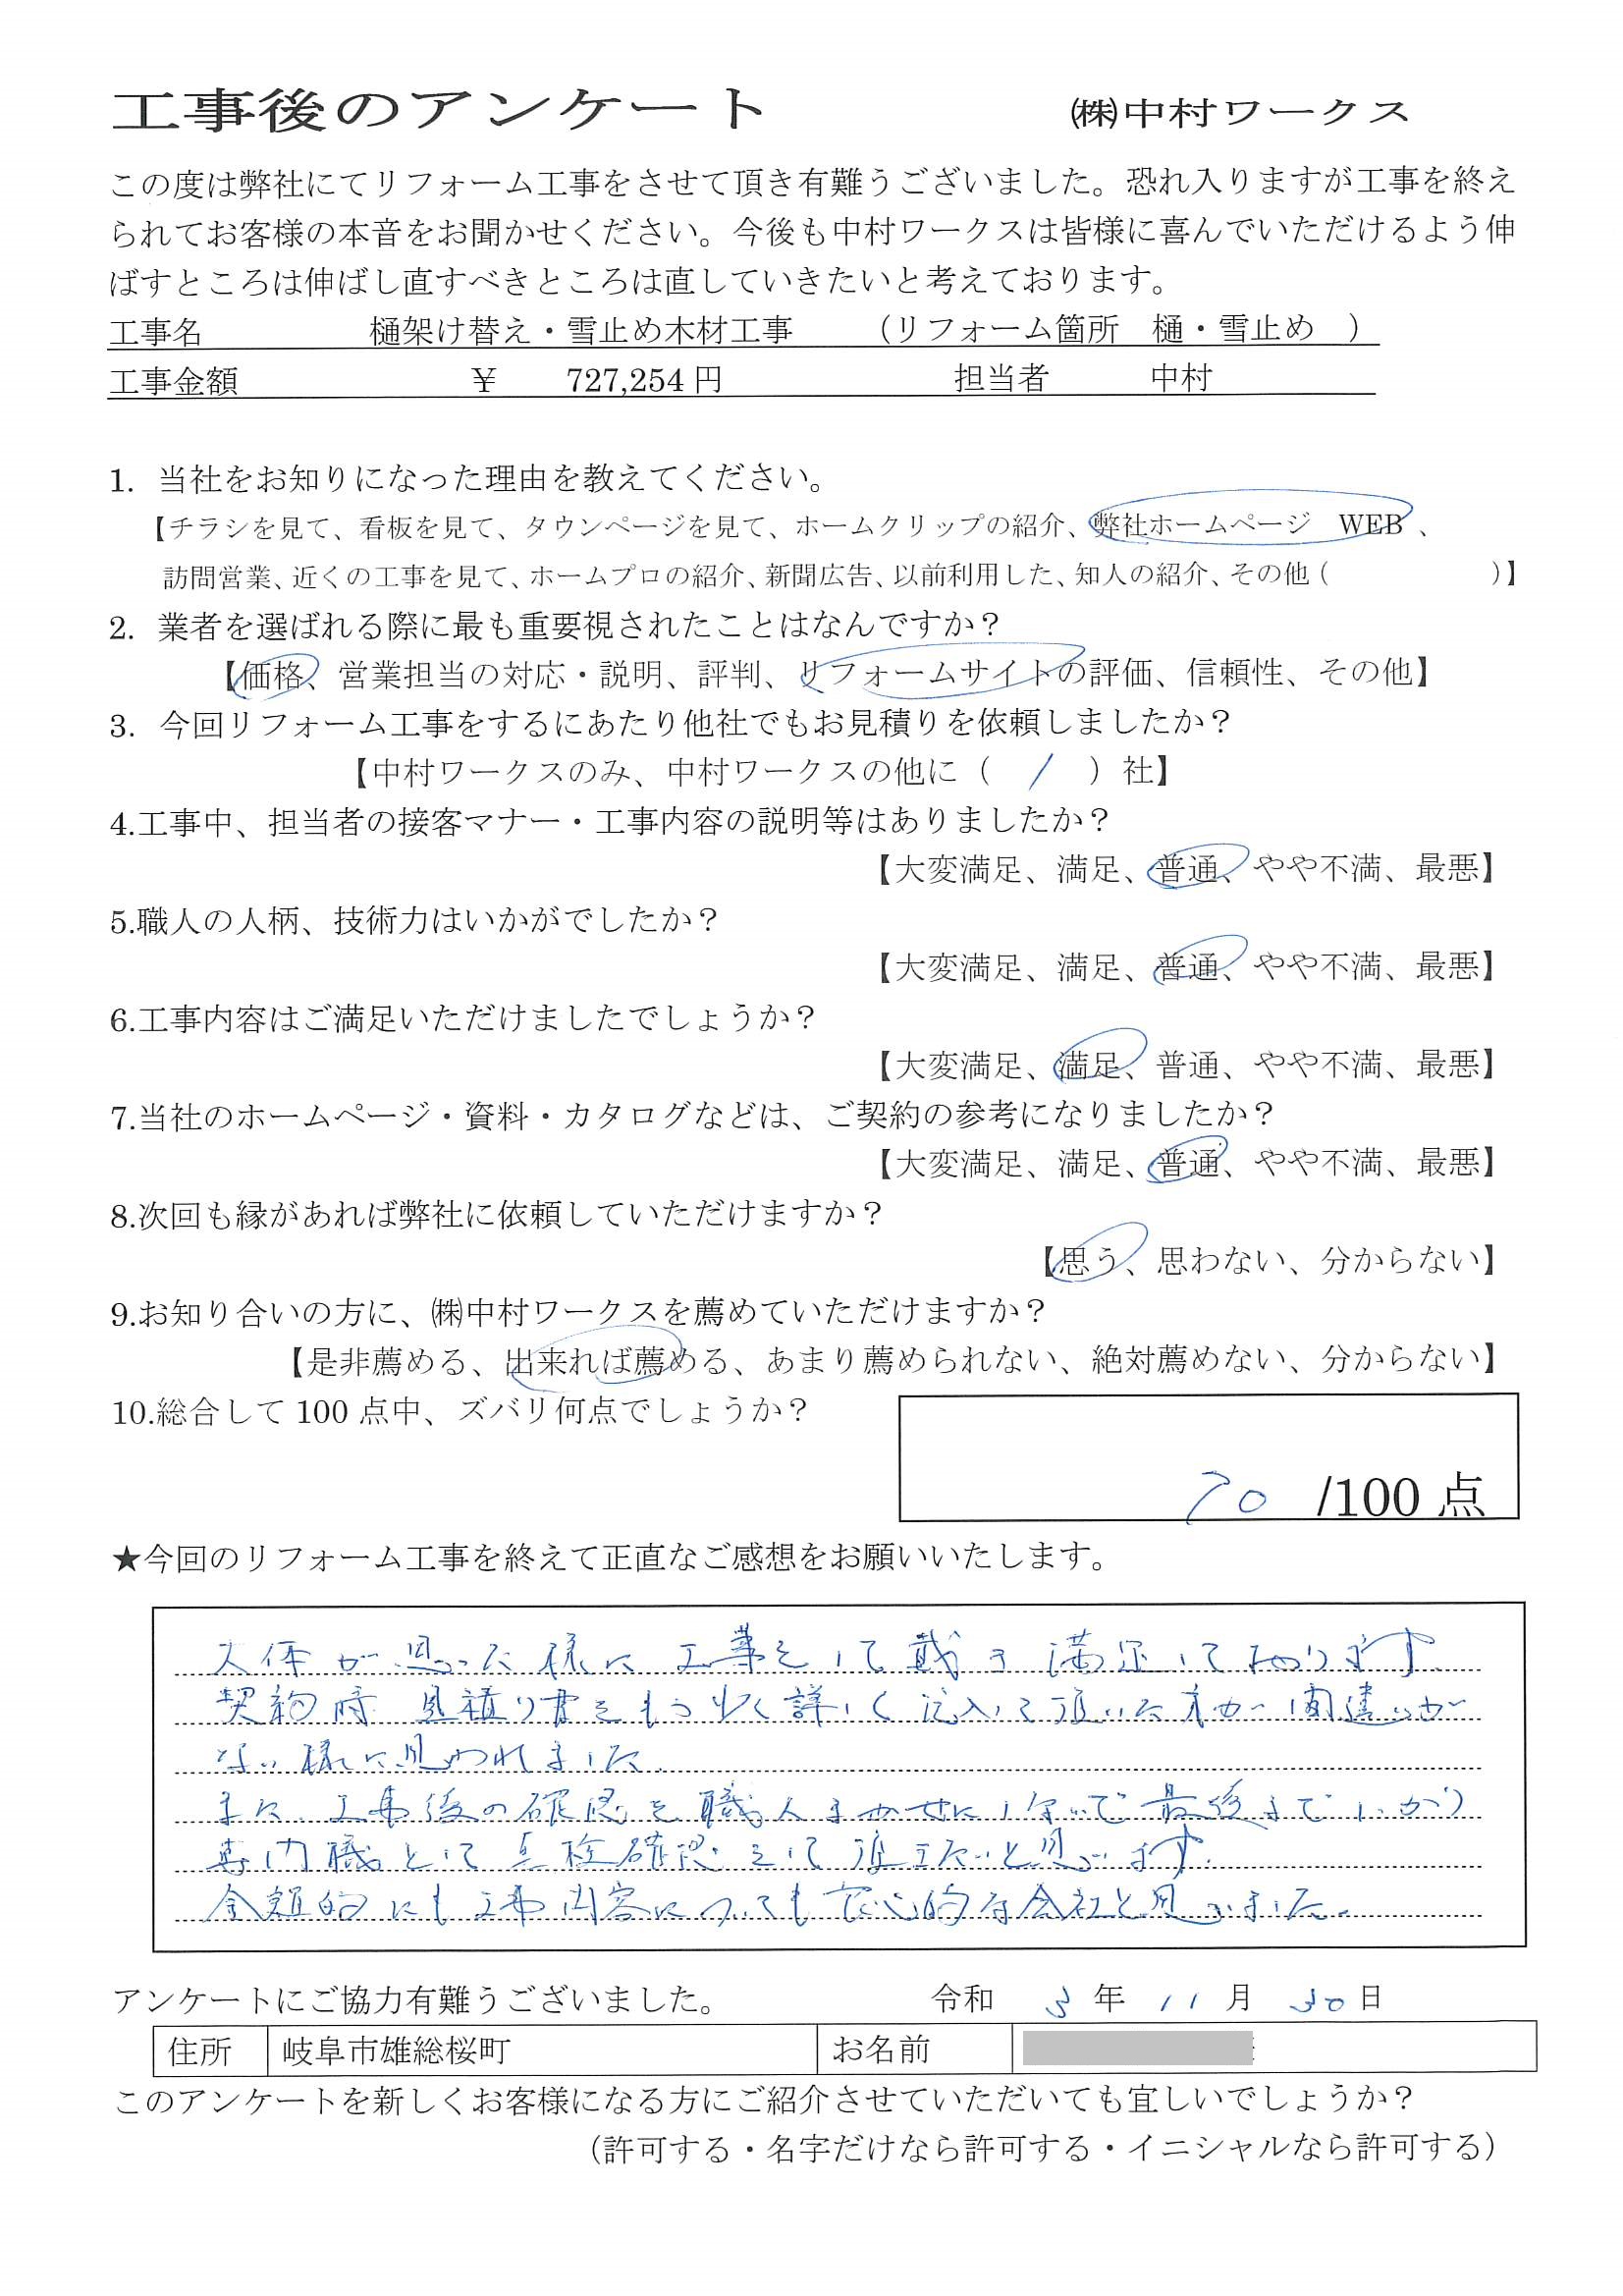 工事後のアンケート ㈱中村ワークス
この度は弊社にてリフォーム工事をさせて頂き有難うございました。恐れ入りますが工事を終え
られてお客様の本音をお聞かせください。今後も中村ワークスは皆様に喜んでいただけるよう伸
ばすところは伸ばし直すべきところは直していきたいと考えております。
工事名 樋架け替え・雪止め木材工事 （リフォーム箇所 樋・雪止め ）
工事金額 ￥ 727,254 円 担当者 中村
1. 当社をお知りになった理由を教えてください。
【チラシを見て、看板を見て、タウンページを見て、ホームクリップの紹介、弊社ホームページ WEB 、
訪問営業、近くの工事を見て、ホームプロの紹介、新聞広告、以前利用した、知人の紹介、その他（ ）】
2. 業者を選ばれる際に最も重要視されたことはなんですか？
【価格、営業担当の対応・説明、評判、リフォームサイトの評価、信頼性、その他】
3. 今回リフォーム工事をするにあたり他社でもお見積りを依頼しましたか？
【中村ワークスのみ、中村ワークスの他に（ / ）社】
4.工事中、担当者の接客マナー・工事内容の説明等はありましたか？
【大変満足、満足、普通、やや不満、最悪】
5.職人の人柄、技術力はいかがでしたか？
【大変満足、満足、普通、やや不満、最悪】
6.工事内容はご満足いただけましたでしょうか？
【大変満足、満足、普通、やや不満、最悪】
7.当社のホームページ・資料・カタログなどは、ご契約の参考になりましたか？
【大変満足、満足、普通、やや不満、最悪】
8.次回も縁があれば弊社に依頼していただけますか？
【思う、思わない、分からない】
9.お知り合いの方に、㈱中村ワークスを薦めていただけますか？
【是非薦める、出来れば薦める、あまり薦められない、絶対薦めない、分からない】
10.総合して 100 点中、ズバリ何点でしょうか？
70 /100 点
★今回のリフォーム工事を終えて正直なご感想をお願いいたします。
大体が思った様に工事をして戴き満足しております。
契約時 見積り書をもう少し詳しく記入して頂いた方が間違いが
ない様に思われました。
また、工事後の確認を職人まかせにしないで最後までしっかり
専門職として点検確認をして頂きたいと思います。
金額的にも工事内容についても良心的な会社と思いました。
アンケートにご協力有難うございました。 令和 3 年 11 月 30 日
住所 岐阜市雄総桜町 お名前
このアンケートを新しくお客様になる方にご紹介させていただいても宜しいでしょうか？
（許可する・名字だけなら許可する・イニシャルなら許可する）